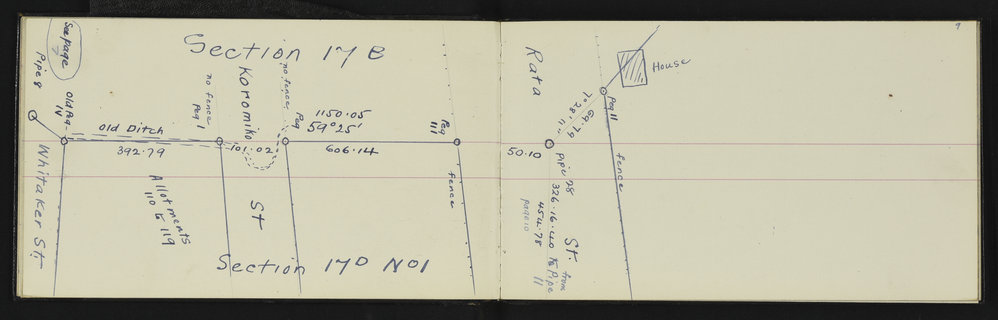 See page
7
Pipe 8
Old Peg
IV
Whitaker St.
Section 17 B
Old Ditch
392.79
no fence
Peg I
Koromiko
St
101.02
no fence
Peg
1150.05
59°25'
606.14
Peg
III
fence
Allotments
110 to 119
Section 17D No1
9
Rata
St.
House
Peg II
69.79
fence
50.10
Pipe 28
326.16.40 to Pipe
from
11
454.78
page 10